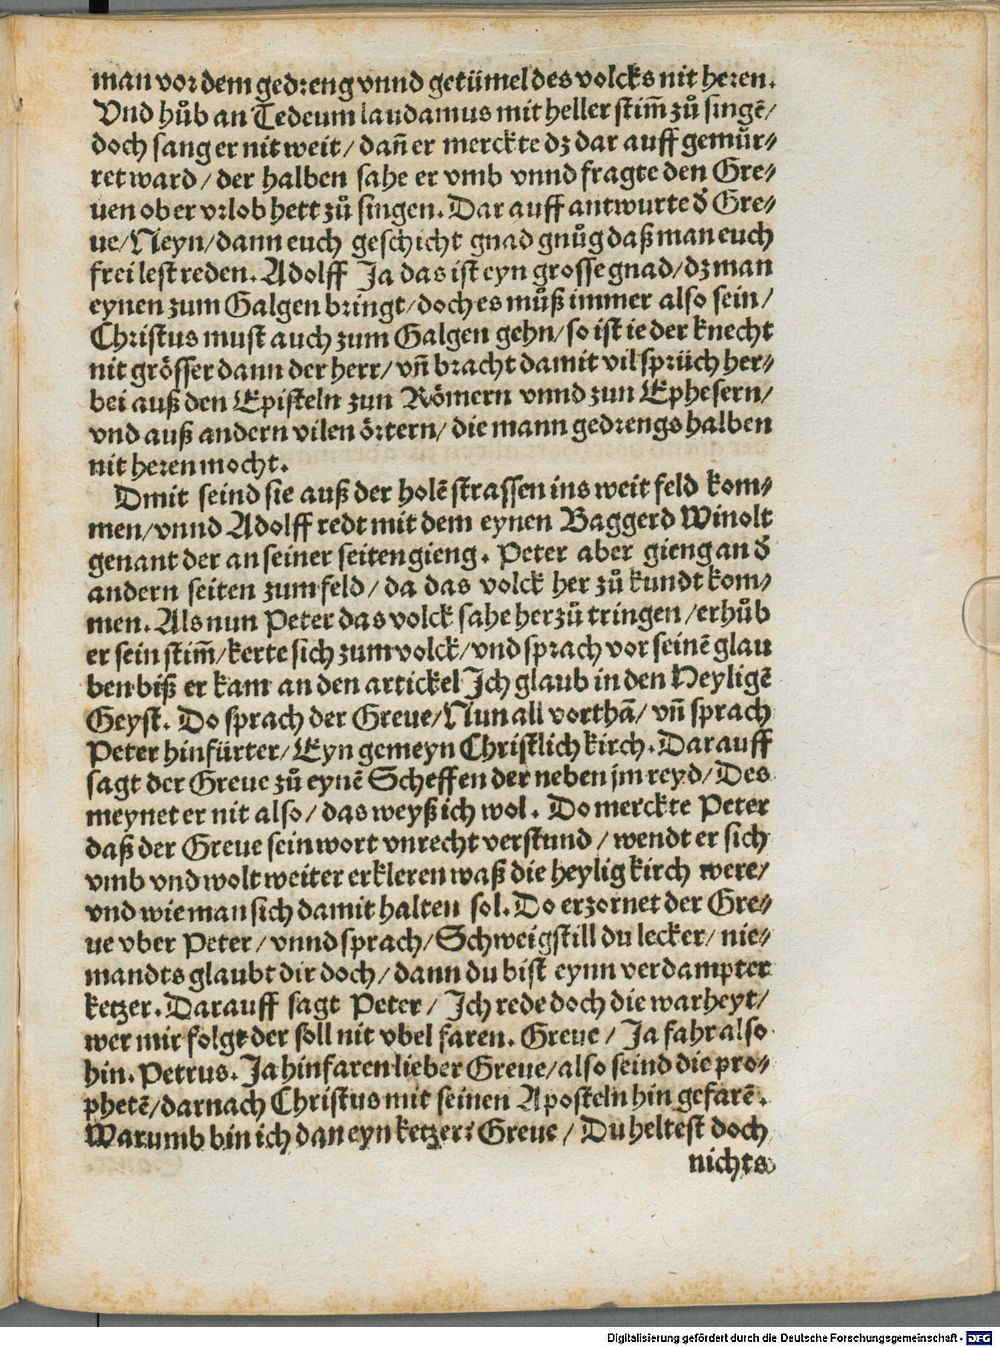 man vor dem gedreng vnnd getümel des volcks nit heren.
Vnd hůb an Tedeum laudamus mit heller stim̄ zů singē/
doch sang er nit weit/ dañ er merckte dz dar auff gemůr⸗
ret ward/ der halben sahe er vmb vnnd fragte den Gre⸗
uen ob er vrlob hett zů singen. Dar auff antwurte d̕ Gre⸗
ue/ Neyn/ dann euch geschicht gnad gnůg daß man euch
frei lest reden. Adolff Ja das ist eyn grosse gnad/ dz man
eynen zum Galgen bringt/ doch es můß immer also sein/
Christus must auch zum Galgen gehn/ so ist ie der knecht
nit grösser dann der herr/ vñ bracht damit vil sprüch her⸗
bei auß den Episteln zun Römern vnnd zun Ephesern/
vnd auß andern vilen örtern/ die mann gedrengs halben
nit heren mocht.
Dmit seind sie auß der holē strassen ins weit feld kom⸗
men/ vnnd Adolff redt mit dem eynen Baggerd Winolt
genant der an seiner seiten gieng. Peter aber gieng an d̕
andern seiten zum feld/ da das volck her zů kundt kom⸗
men. Als nun Peter das volck sahe herzů tringen/ erhůb
er sein stim̄/ kerte sich zum volck/ vnd sprach vor seinē glau
ben biß er kam an den artickel Ich glaub in den Heyligē
Geyst. Do sprach der Greue/ Nun all vorthā/ vñ sprach
Peter hinfürter/ Eyn gemeyn Christlich kirch. Darauff
sagt der Greue zů eynē Scheffen der neben jm reyd/ Des
meynet er nit also/ das weyß ich wol. Do merckte Peter
daß der Greue sein wort vnrecht verstund/ wendt er sich
vmb vnd wolt weiter erkleren waß die heylig kirch were/
vnd wie man sich damit halten sol. Do erzornet der Gre⸗
ue vber Peter/ vnnd sprach/ Schweig still du lecker/ nie⸗
mandts glaubt dir doch/ dann du bist eynn verdampter
ketzer. Darauff sagt Peter/ Ich rede doch die warheyt/
wer mir folgt der soll nit vbel faren. Greue/ Ja fahr also
hin. Petrus. Ja hinfaren lieber Greue/ also seind die pro⸗
phetē/ darnach Christus mit seinen Aposteln hin gefarē.
Warumb bin ich dan eyn ketzer? Greue/ Du heltest doch
nichts
Digitalisierung gefördert durch die Deutsche Forschungsgemeinschaft - DFG